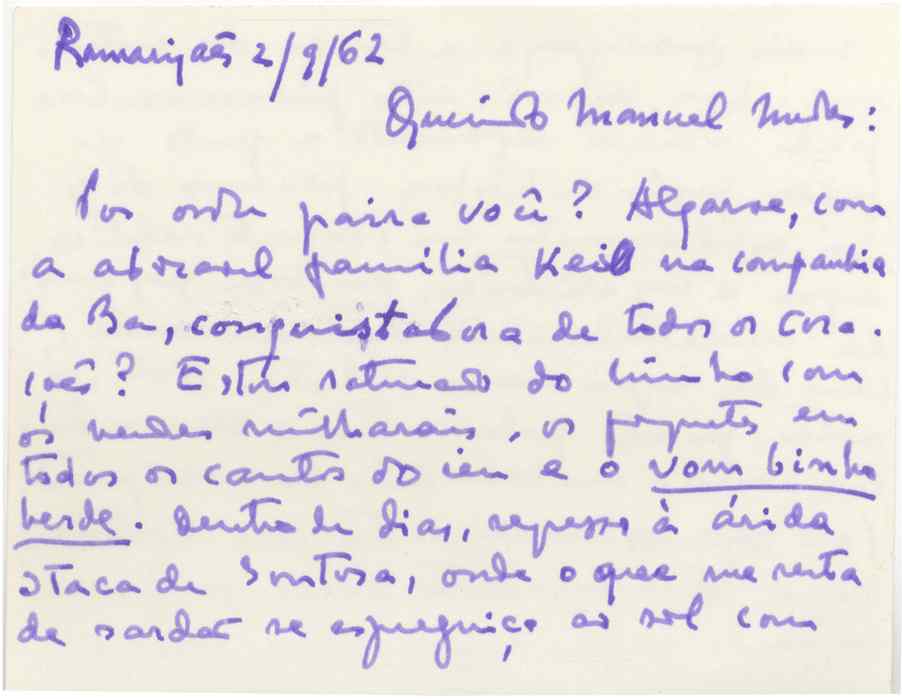 Romarigães 2/9/62
Querido Manuel Mendes:
Por onde paira você? Algarve, com
a adorável família Keil na companhia
da Ba, conquistadora de todos os cora-
ções? Estou saturado do Minho com
os verdes milharais, os foguetes em
todos os cantos do céu e o vom binho
berde. Dentro de dias, regresso à árida
ataca de Soutosa, onde o que me resta
de sardão se espreguiça ao sol com